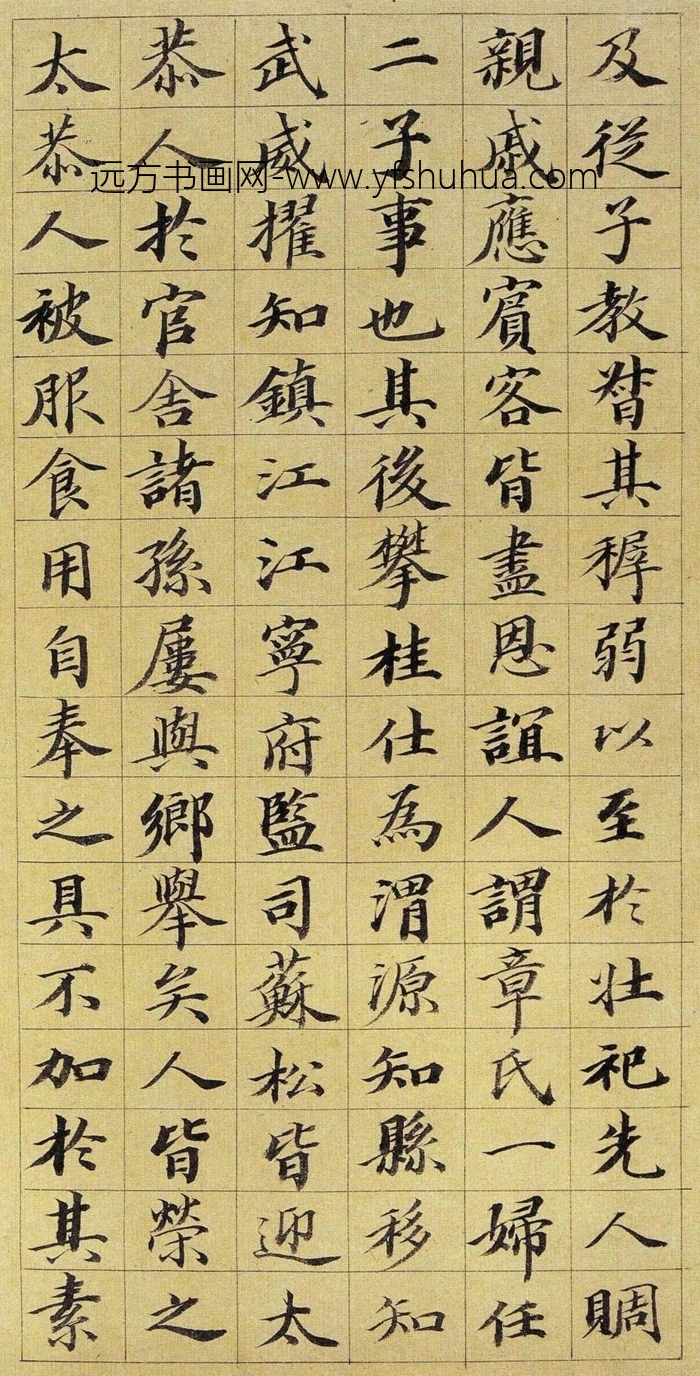 及從子教督其穉弱以至於壯祀先人賙
親戚應賓客皆盡恩誼人謂章氏一婦任
二子事也其後攀桂仕為渭源知縣移知
武威擢知鎮江江寧府監司蘇松皆迎太
恭人於官舍諸孫屢與鄉舉矣人皆榮之
太恭人被服食用自奉之具不加於其素
远方书画网-www.yfshuhua.com